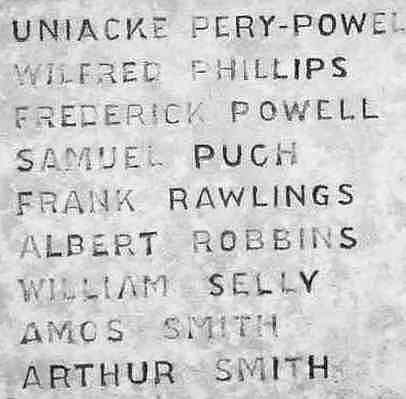 UNIACKE PERY-POWEL
WILFRED PHILLIPS
FREDERICK POWELL
SAMUEL PUCH
FRANK RAWLINGS
ALBERT ROBBINS
WILLIAM SELLY
AMOS SMITH
ARTHUR SMITH